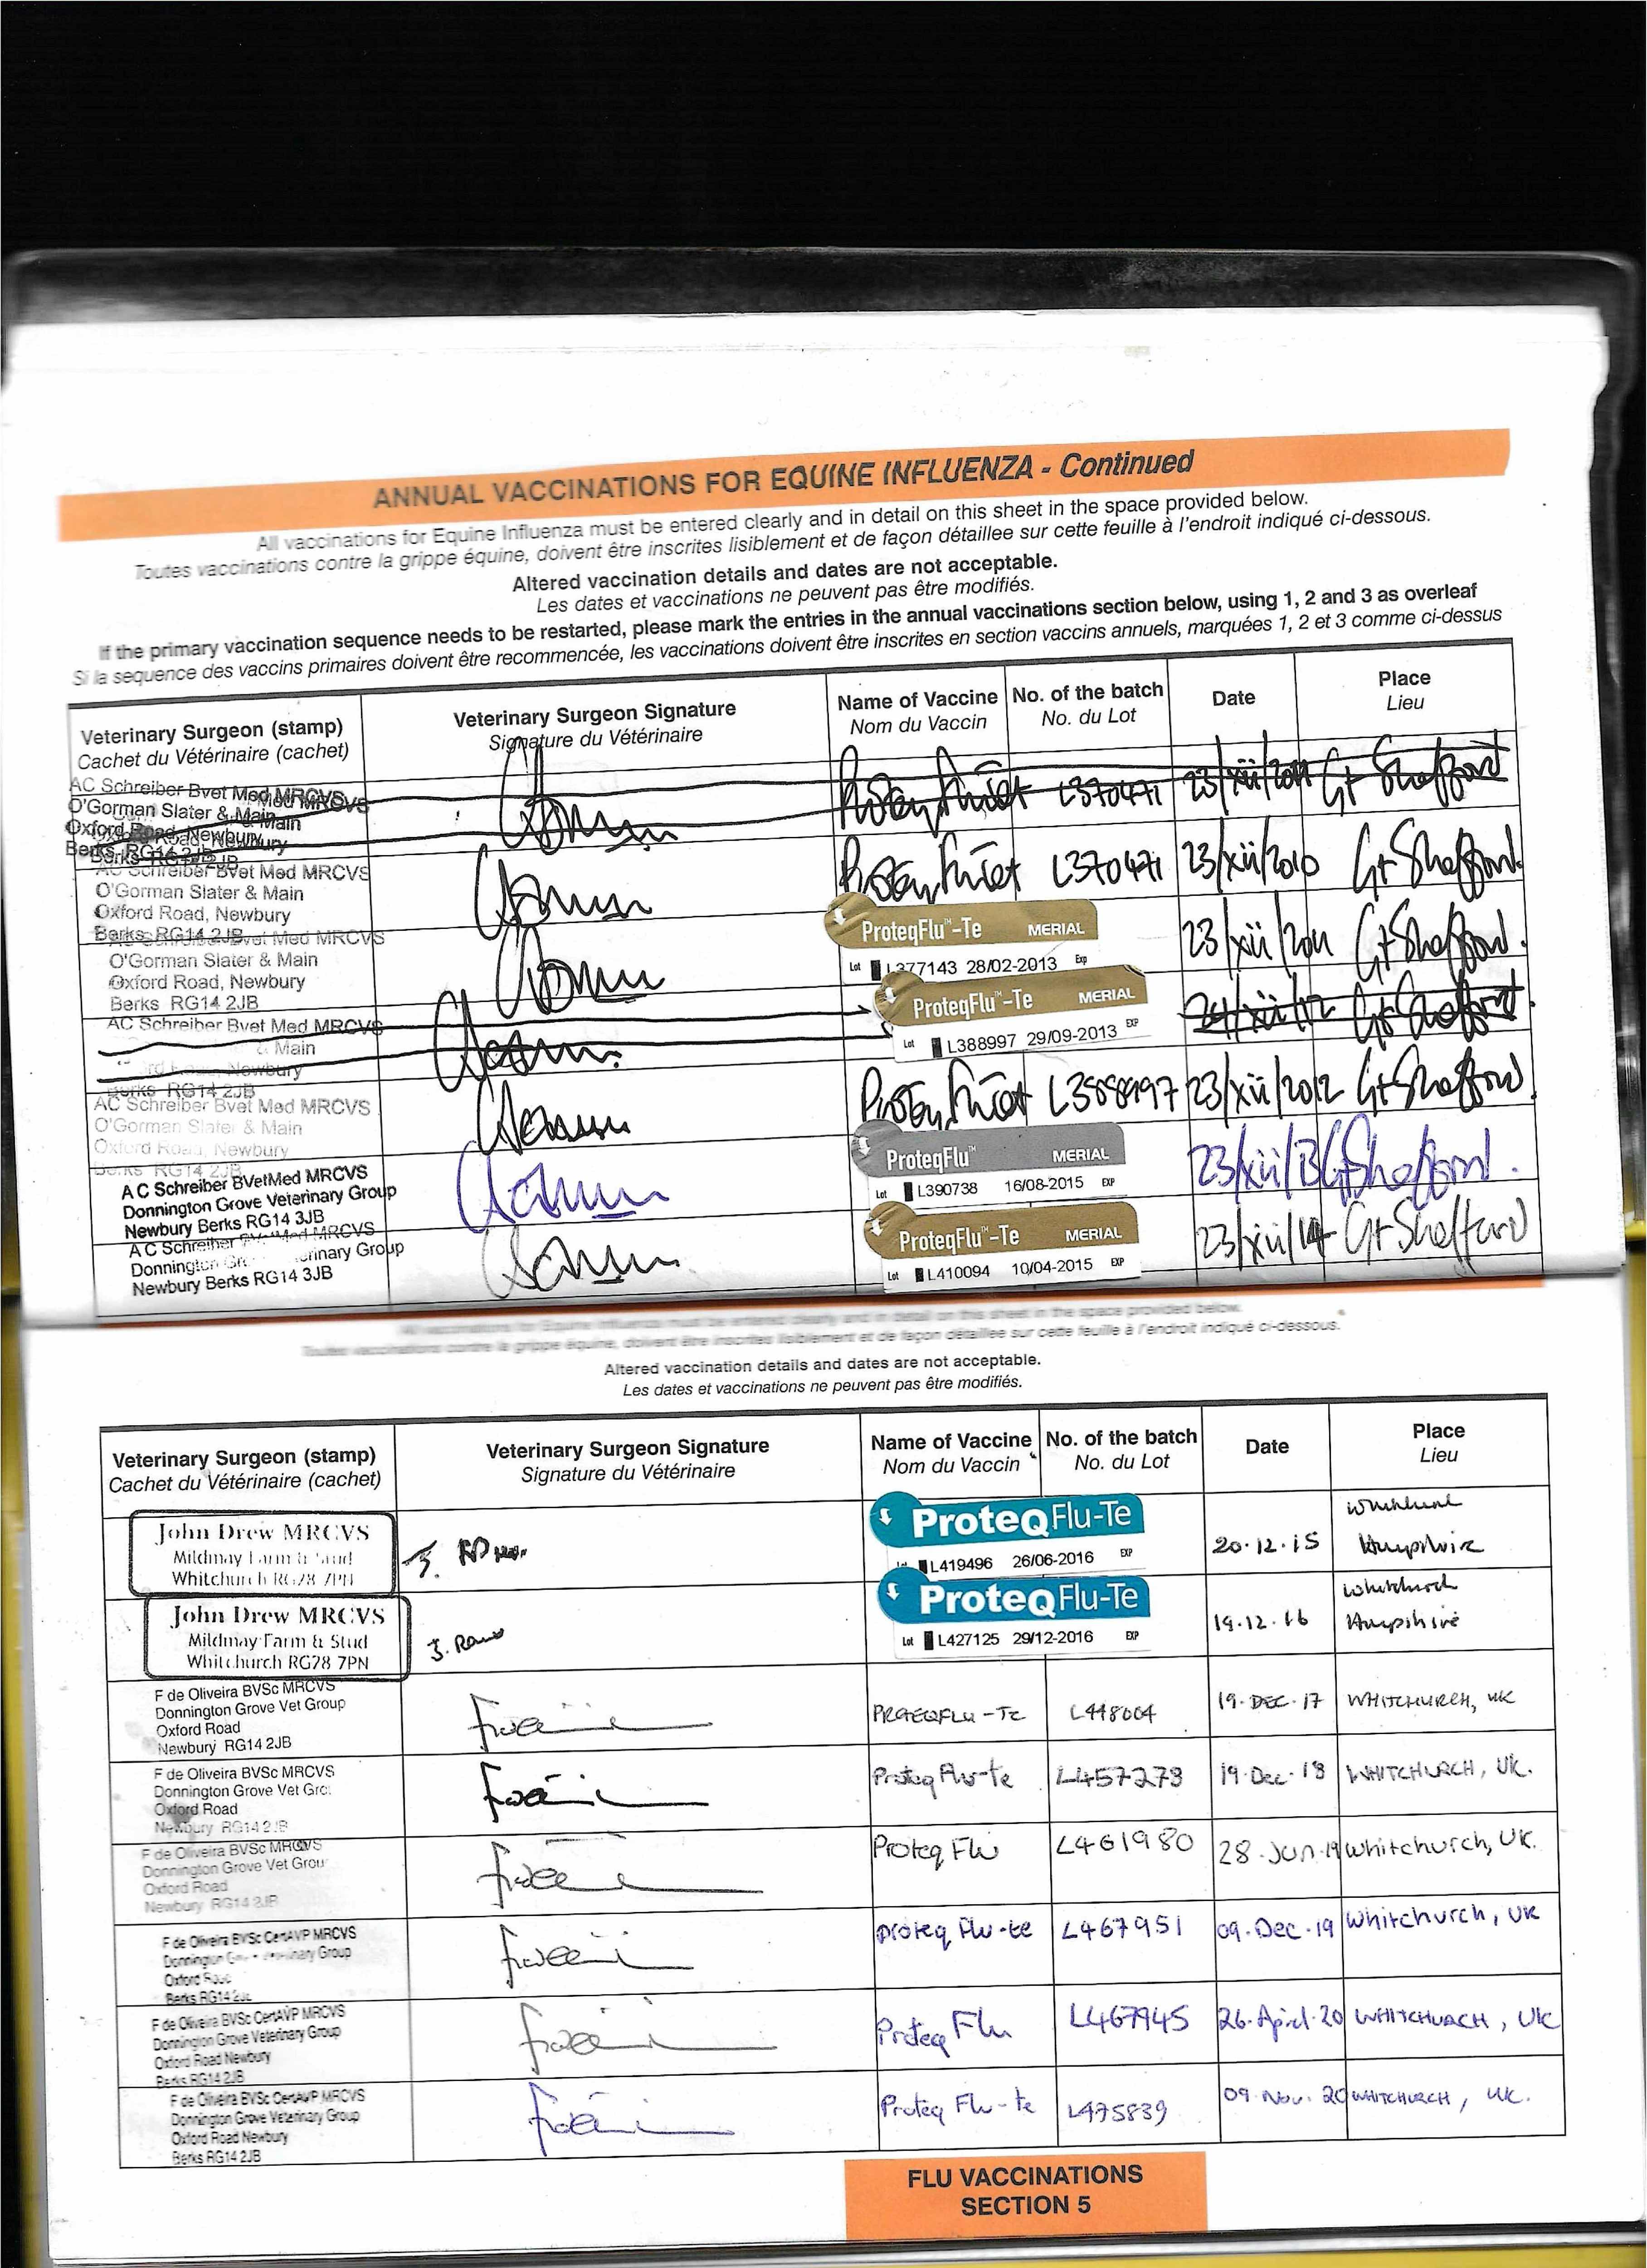 ANNUAL VACCINATIONS FOR EQUINE INFLUENZA - Continued
All vaccinations for Equine Influenza must be entered clearly and in detail on this sheet in the space provided below.
Toutes vaccinations contre la grippe équine, doivent être inscrites lisiblement et de façon détaillee sur cette feuille à l'endroit indiqué ci-dessous.
Altered vaccination details and dates are not acceptable.
Les dates et vaccinations ne peuvent pas être modifiés.
If the primary vaccination sequence needs to be restarted, please mark the entries in the annual vaccinations section below, using 1, 2 and 3 as overleaf
Si la sequence des vaccins primaires doivent être recommencée, les vaccinations doivent être inscrites en section vaccins annuels, marquées 1, 2 et 3 comme ci-dessus
Veterinary Surgeon (stamp) Veterinary Surgeon Signature Name of Vaccine No. of the batch Date Place
Cachet du Vétérinaire (cachet) Signature du Vétérinaire Nom du Vaccin No. du Lot Lieu
AC Schreiber Bvet Med MRCVS
O'Gorman Slater & Main
Oxford Road, Newbury
Berks RG14 2JB
L370471 23/xii/2011 Gt Shefford
AC Schreiber Bvet Med MRCVS
O'Gorman Slater & Main
Oxford Road, Newbury
Berks RG14 2JB
L370471 23/xii/2010 Gt Shefford.
Bvet Med MRCVS
O'Gorman Slater & Main
Oxford Road, Newbury
Berks RG14 2JB
ProteqFlu™-Te MERIAL
Lot L377143 28/02-2013 Exp
23/xii/2011 Gt Shefford.
AC Schreiber Bvet Med MRCVS
& Main
Newbury
Berks RG14 2JB
ProteqFlu™-Te MERIAL
Lot L388997 29/09-2013 EXP
24/xii/12 Gt Shefford.
AC Schreiber Bvet Med MRCVS
O'Gorman Slater & Main
Oxford Road, Newbury
Berks RG14 2JB
L388997 23/xii/2012 Gt Shefford.
A C Schreiber BVetMed MRCVS
Donnington Grove Veterinary Group
Newbury Berks RG14 3JB
ProteqFlu™ MERIAL
Lot L390738 16/08-2015 EXP
23/xii/13 Gt Shefford.
A C Schreiber BVetMed MRCVS
Donnington Gr erinary Group
Newbury Berks RG14 3JB
ProteqFlu™-Te MERIAL
Lot L410094 10/04-2015 EXP
23/xii/14 Gt Shefford
All vaccinations for Equine Influenza must be entered clearly and in detail on this sheet in the space provided below.
Toutes vaccinations contre la grippe équine, doivent être inscrites lisiblement et de façon détaillee sur cette feuille à l'endroit indiqué ci-dessous.
Altered vaccination details and dates are not acceptable.
Les dates et vaccinations ne peuvent pas être modifiés.
Veterinary Surgeon (stamp) Veterinary Surgeon Signature Name of Vaccine No. of the batch Date Place
Cachet du Vétérinaire (cachet) Signature du Vétérinaire Nom du Vaccin No. du Lot Lieu
John Drew MRCVS
Mildmay Farm & Stud
Whitchurch RG28 7PN
ProteqFlu-Te
L419496 26/06-2016 EXP
20.12.15 Whitchurch
Hampshire
John Drew MRCVS
Mildmay Farm & Stud
Whitchurch RG28 7PN
ProteqFlu-Te
Lot L427125 29/12-2016 EXP
19.12.16 Whitchurch
Hampshire
F de Oliveira BVSc MRCVS
Donnington Grove Vet Group
Oxford Road
Newbury RG14 2JB
PROTEQFLU-Te L448004 19.DEC.17 WHITCHURCH, UK
F de Oliveira BVSc MRCVS
Donnington Grove Vet Gro
Oxford Road
Newbury RG14 2JB
Proteq Flu-te L457273 19.Dec.18 WHITCHURCH, UK.
F de Oliveira BVSc MRCVS
Donnington Grove Vet Grou
Oxford Road
Newbury RG14 2JB
Proteq Flu L461980 28.Jun.19 Whitchurch, UK.
F de Oliveira BVSc CertAVP MRCVS
Donnington Group
Oxford Road
Berks RG14 2JB
Proteq Flu-te L467951 09.Dec.19 Whitchurch, UK
F de Oliveira BVSc CertAVP MRCVS
Donnington Grove Veterinary Group
Oxford Road Newbury
Berks RG14 2JB
Proteq Flu L467945 26.April.20 WHITCHURCH, UK
F de Oliveira BVSc CertAVP MRCVS
Donnington Grove Veterinary Group
Oxford Road Newbury
Berks RG14 2JB
Proteq Flu-te L475839 09.Nov.20 WHITCHURCH, UK.
FLU VACCINATIONS
SECTION 5